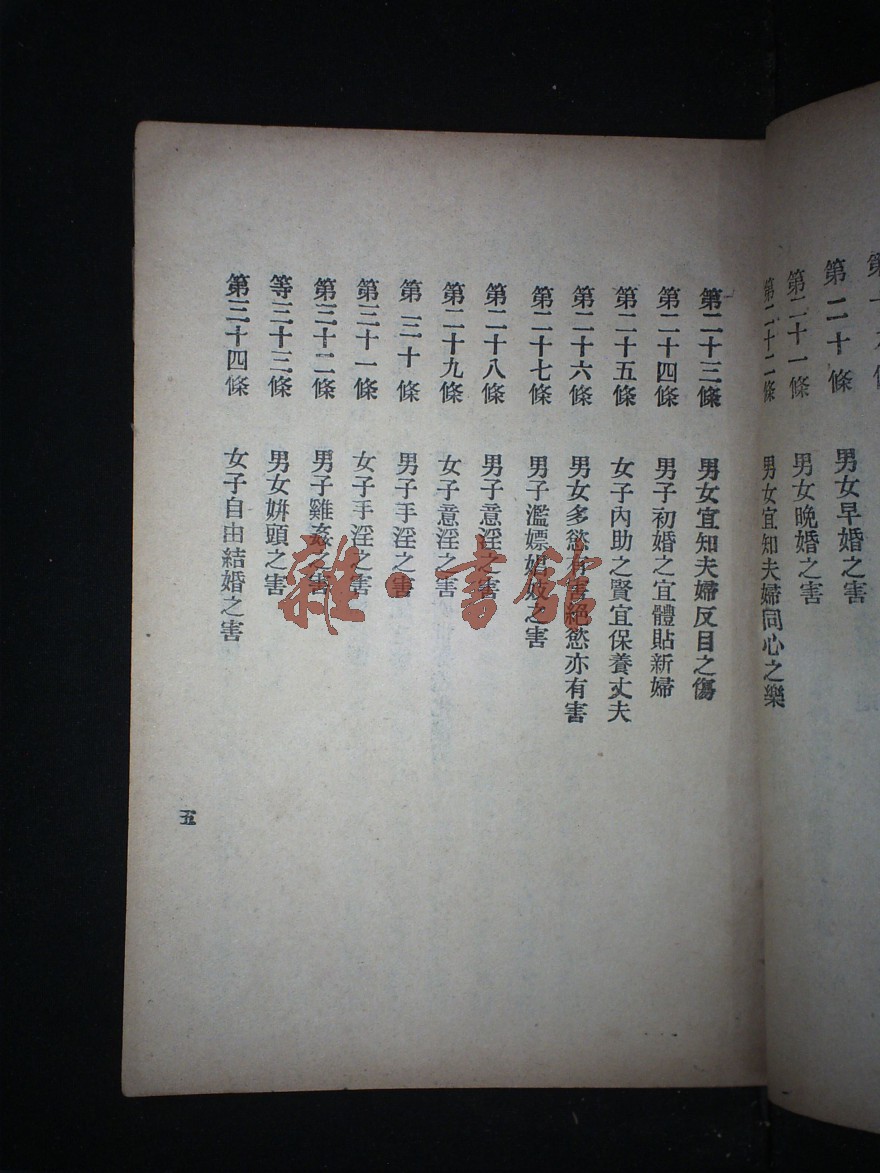 第二十條 男女早婚之害
第二十一條 男女晚婚之害
第二十二條 男女宜知夫婦同心之樂
第二十三條 男女宜知夫婦反目之傷
第二十四條 男子初婚之宜體貼新婦
第二十五條 女子內助之賢宜保養丈夫
第二十六條 男女多慾有害絕慾亦有害
第二十七條 男子濫嫖娼妓之害
第二十八條 男子意淫之害
第二十九條 女子意淫之害
第三十條 男子手淫之害
第三十一條 女子手淫之害
第三十二條 男子雞姦之害
等三十三條 男女姘頭之害
第三十四條 女子自由結婚之害
五
雜·書館